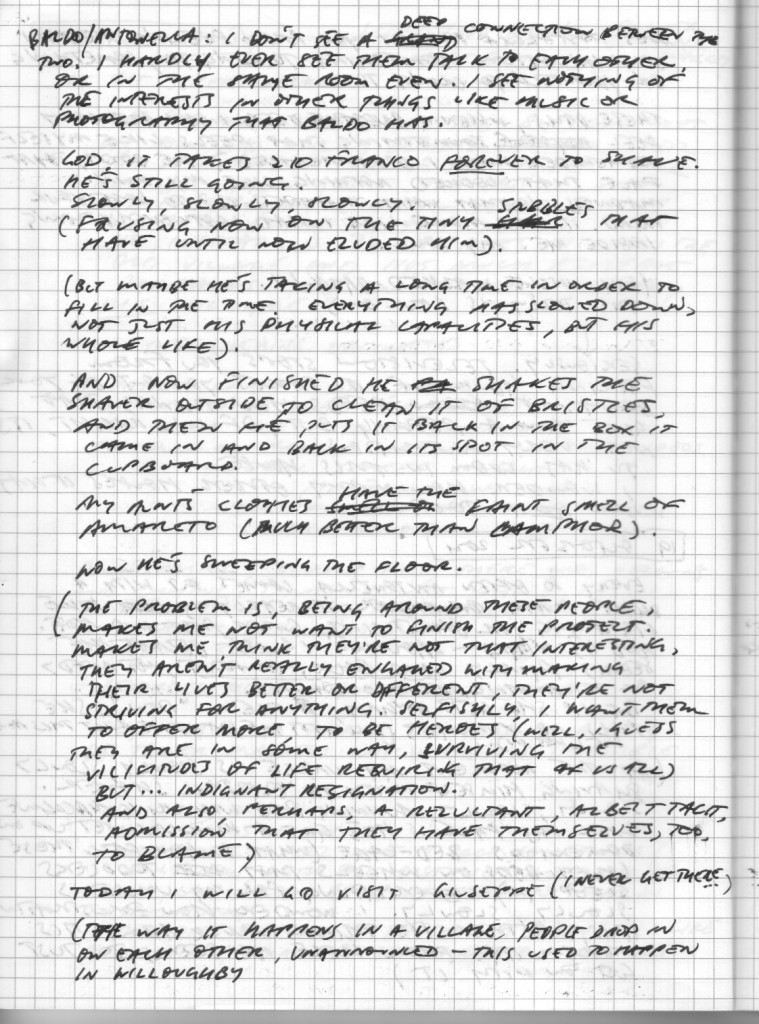 BALDO/ANTONELLA: I DON'T SEE A DEEP CONNECTION BETWEEN THE
TWO. I HARDLY EVER SEE THEM TALK TO EACH OTHER,
OR IN THE SAME ROOM EVEN. I SEE NOTHING OF
THE INTERESTS IN OTHER THINGS LIKE MUSIC OR
PHOTOGRAPHY THAT BALDO HAS.
GOD, IT TAKES ZIO FRANCO FOREVER TO SHAVE.
HE'S STILL GOING.
SLOWLY, SLOWLY, SLOWLY.
(FOCUSING NOW ON THE TINY STUBBLES THAT
HAVE UNTIL NOW ELUDED HIM).
(BUT MAYBE HE'S TAKING A LONG TIME IN ORDER TO
FILL IN THE TIME. EVERYTHING HAS SLOWED DOWN,
NOT JUST HIS PHYSICAL CAPACITIES, BUT HIS
WHOLE LIFE).
AND NOW FINISHED HE SHAKES THE
SHAVER OUTSIDE TO CLEAN IT OF BRISTLES,
AND THEN HE PUTS IT BACK IN THE BOX IT
CAME IN AND BACK IN ITS SPOT IN THE
CUPBOARD.
MY AUNT'S CLOTHES HAVE THE FAINT SMELL OF
AMARETO (MUCH BETTER THAN CAMPHOR).
NOW HE'S SWEEPING THE FLOOR.
(THE PROBLEM IS, BEING AROUND THESE PEOPLE,
MAKES ME NOT WANT TO FINISH THE PROJECT.
MAKES ME THINK THEY'RE NOT THAT INTERESTING,
THEY AREN'T REALLY ENGAGED WITH MAKING
THEIR LIVES BETTER OR DIFFERENT, THEY'RE NOT
STRIVING FOR ANYTHING. SELFISHLY, I WANT THEM
TO OFFER MORE, TO BE HEROES (WELL, I GUESS
THEY ARE IN SOME WAY, SURVIVING THE
VICISITUDES OF LIFE REQUIRING THAT OF US ALL)
BUT... INDIGNANT RESIGNATION.
AND ALSO, PERHAPS, A RELUCTANT, ALBEIT TACIT,
ADMISSION THAT THEY HAVE THEMSELVES, TOO,
TO BLAME)
TODAY I WILL GO VISIT GIUSEPPE (I NEVER GET THERE)
(THE WAY IT HAPPENS IN A VILLAGE, PEOPLE DROP IN
ON EACH OTHER, UNANNOUNCED – THIS USED TO HAPPEN
IN WILLOUGHBY